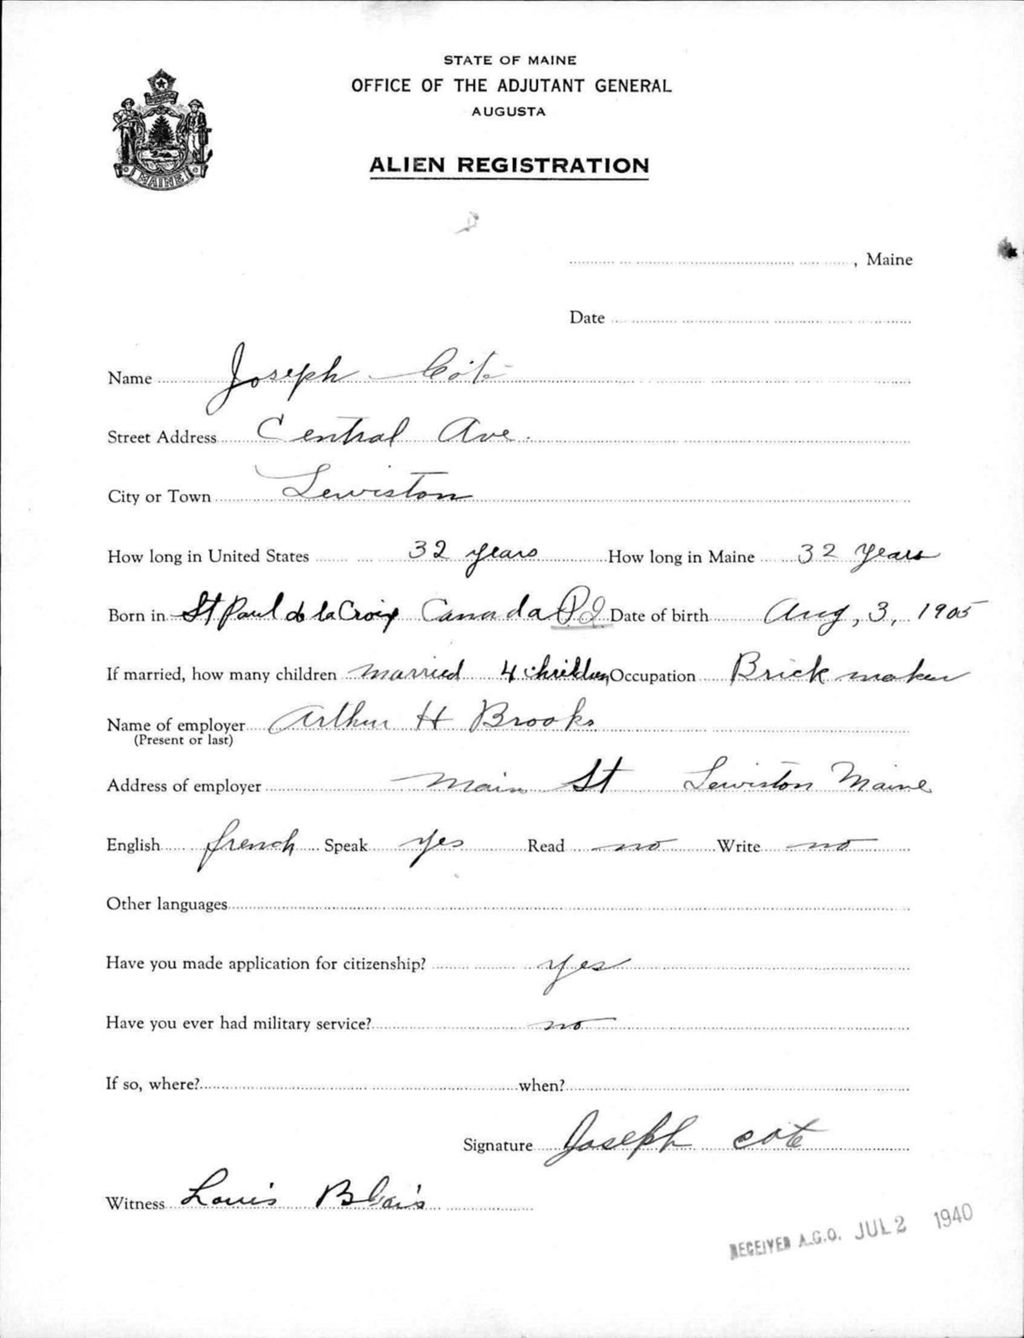 STATE OF MAINE
OFFICE OF THE ADJUTANT GENERAL
AUGUSTA
ALIEN REGISTRATION
MAINE
, Maine
Date
Name Joseph Coté
Street Address Central Ave.
City or Town Lewiston
How long in United States 32 years How long in Maine 32 years
Born in St Paul de la Croix Canada P.Q. Date of birth Aug, 3, 1905
If married, how many children married 4 Occupation Brick maker
Name of employer Arthur H Brooks
(Present or last)
Address of employer Main St Lewiston Maine
English french Speak yes Read no Write no
Other languages
Have you made application for citizenship? yes
Have you ever had military service? no
If so, where? when?
Signature Joseph cote
Witness Louis Blais
RECEIVED A.G.O. JUL 2 1940